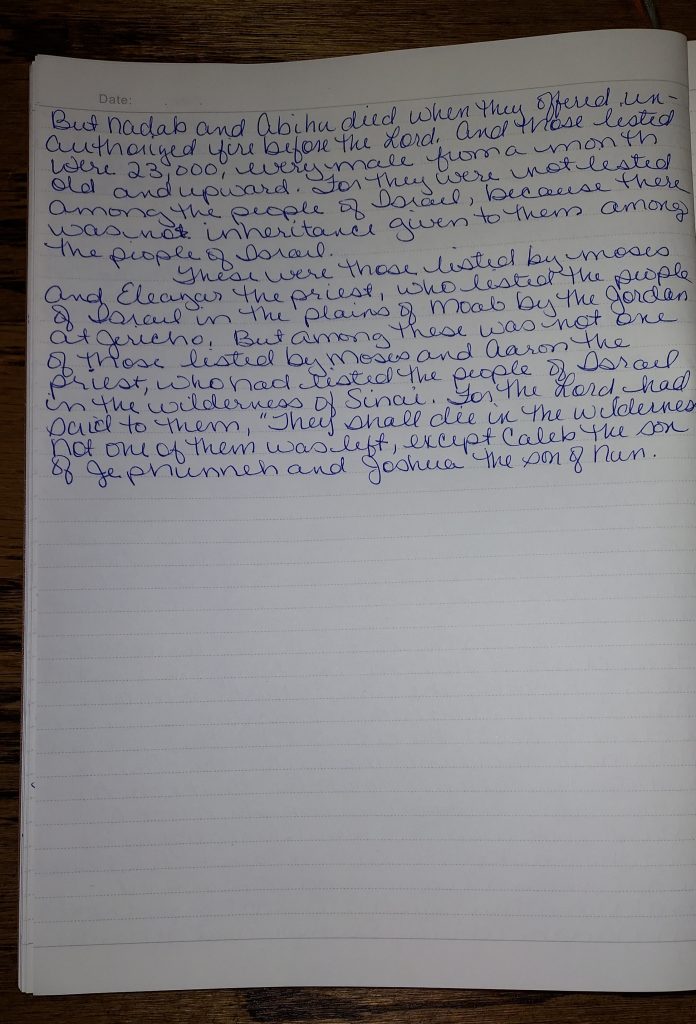 Date:
But Nadab and Abihu died when they offered un-
authorized fire before the Lord. And those listed
were 23,000, every male from a month
old and upward. For they were not listed
among the people of Israel, because there
was not inheritance given to them among
the people of Israel.
These were those listed by Moses
and Eleazar the priest, who listed the people
of Israel in the plains of Moab by the Jordan
at Jericho. But among these was not one
of those listed by Moses and Aaron the
priest, who had listed the people of Israel
in the wilderness of Sinai. For the Lord had
said to them, "They shall die in the wilderness
Not one of them was left, except Caleb the son
of Jephunneh and Joshua the son of Nun.